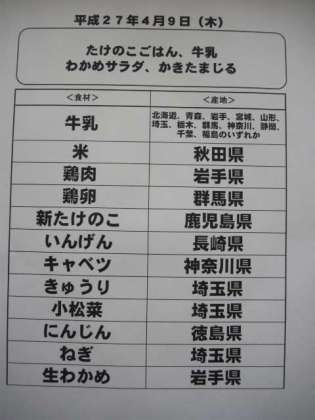 平成27年4月9日（木）
たけのこごはん、牛乳
わかめサラダ、かきたまじる
＜食材＞ ＜産地＞
牛乳 北海道、青森、岩手、宮城、山形、
埼玉、栃木、群馬、神奈川、静岡、
千葉、福島のいずれか
米 秋田県
鶏肉 岩手県
鶏卵 群馬県
新たけのこ 鹿児島県
いんげん 長崎県
キャベツ 神奈川県
きゅうり 埼玉県
小松菜 埼玉県
にんじん 徳島県
ねぎ 埼玉県
生わかめ 岩手県